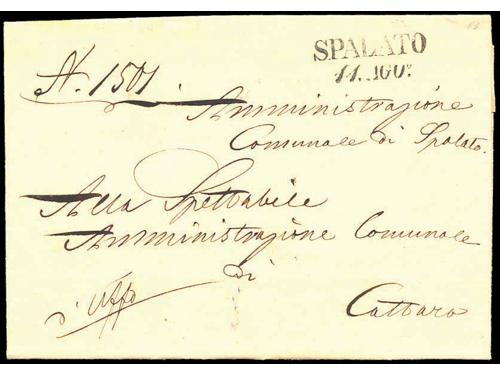 SPALATO
11. AGO.
N. 1501.
Amministrazione
Comunale di Spalato.
Alla Spettabile
Amministrazione Comunale
di
d'Uffo
Cattaro